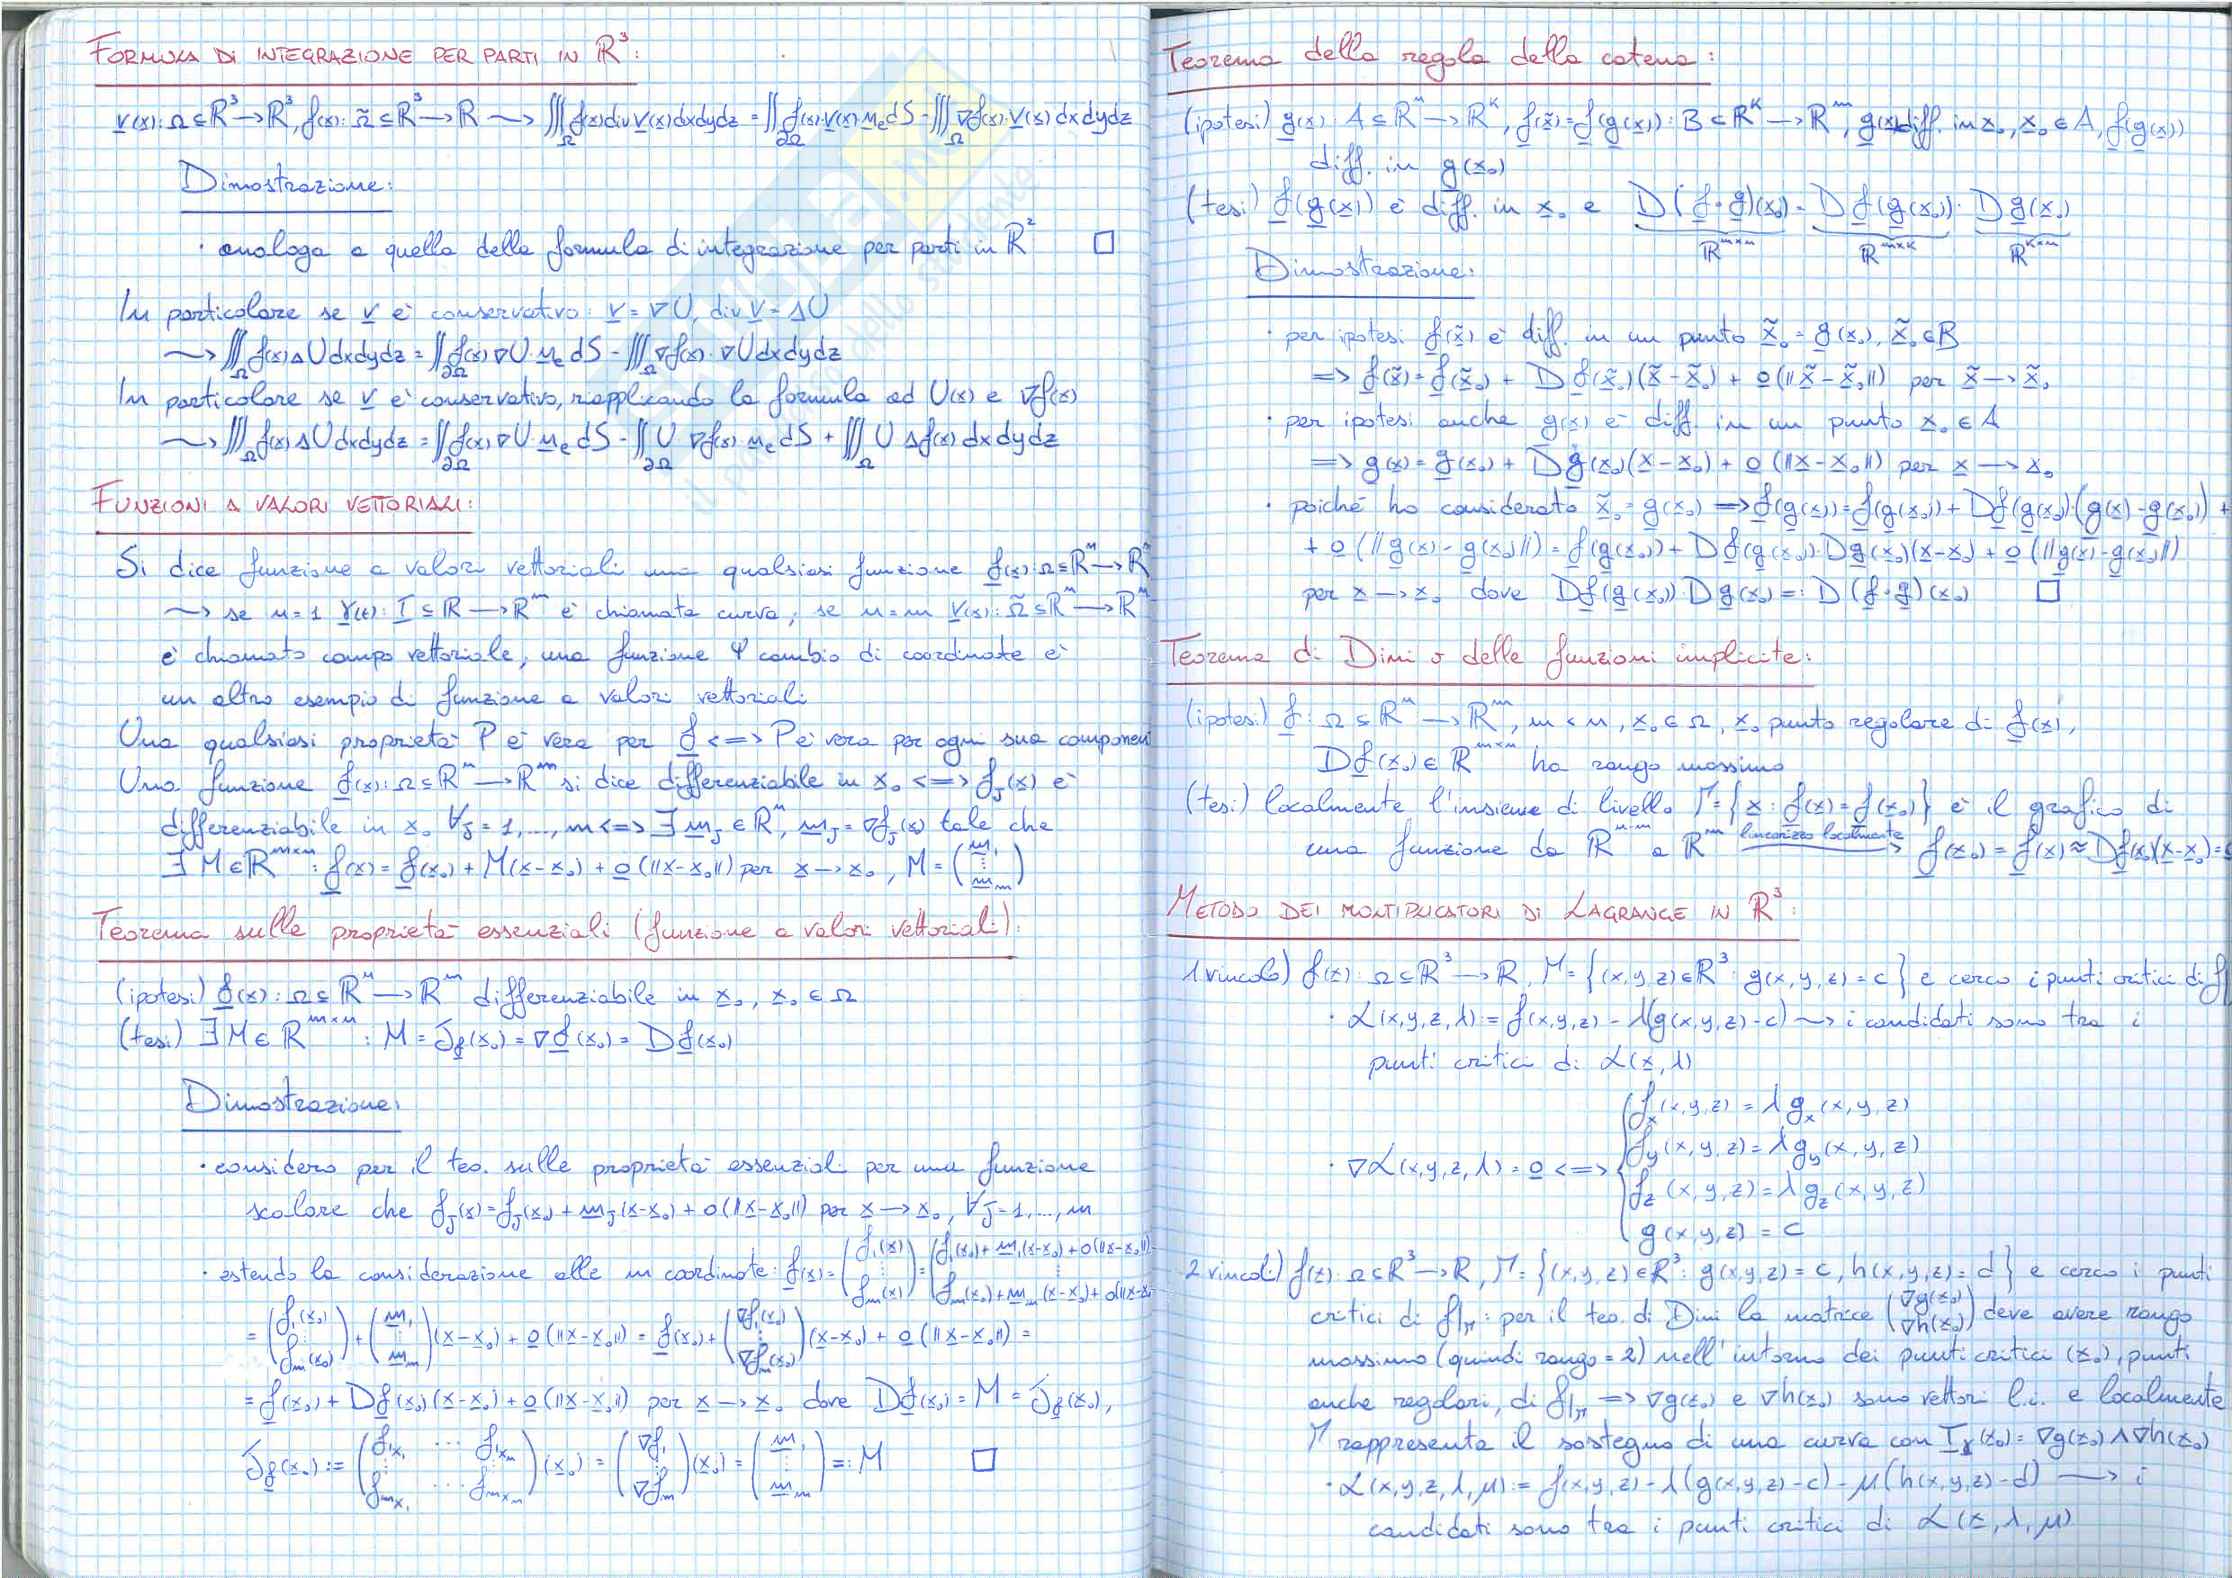 FORMULA DI INTEGRAZIONE PER PARTI IN ℝ³:
v(x): Ω⊆ℝ³→ℝ³, f(x): Ω̃⊆ℝ³→ℝ ⇝ ∭_Ω f(x) div v(x) dxdydz = ∬_∂Ω f(x)·v(x)·n_e dS - ∭_Ω ∇f(x)·v(x) dxdydz
Dimostrazione:
· analoga a quella della formula di integrazione per parti in ℝ² □
In particolare se v è conservativo: v = ∇U, div v = ΔU
⇝ ∭_Ω f(x) ΔU dxdydz = ∬_∂Ω f(x) ∇U·n_e dS - ∭_Ω ∇f(x)·∇U dxdydz
In particolare se v è conservativo, riapplicando la formula ad U(x) e ∇f(x)
⇝ ∭_Ω f(x) ΔU dxdydz = ∬_∂Ω f(x) ∇U·n_e dS - ∬_∂Ω U ∇f(x) n_e dS + ∭_Ω U Δf(x) dxdydz
FUNZIONI A VALORI VETTORIALI:
Si dice funzione a valori vettoriali una qualsiasi funzione f(x): Ω⊆ℝⁿ→ℝᵐ
⇝ se n=1 γ(t): I⊆ℝ→ℝᵐ è chiamata curva; se n=m v(x): Ω̃⊆ℝⁿ→ℝⁿ
è chiamato campo vettoriale; una funzione Ψ cambio di coordinate è
un altro esempio di funzione a valori vettoriali
Una qualsiasi proprietà P è vera per f <=> P è vera per ogni sua componen
Una funzione f(x): Ω⊆ℝⁿ→ℝᵐ si dice differenziabile in x₀ <=> f_J(x) è
differenziabile in x₀ ∀J=1,...,m <=> ∃ m_J ∈ ℝⁿ, m_J = ∇f_J(x) tale che
∃ M∈ℝ^(m×n): f(x) = f(x₀) + M(x-x₀) + o(||x-x₀||) per x→x₀, M = (m₁ ⋮ m_m)
Teorema sulle proprietà essenziali (funzione a valori vettoriali):
(ipotesi) f(x): Ω⊆ℝⁿ→ℝᵐ differenziabile in x₀, x₀∈Ω
(tesi) ∃ M∈ℝ^(m×n): M = J_f(x₀) = ∇f(x₀) = Df(x₀)
Dimostrazione:
· considero per il teo. sulle proprietà essenziali per una funzione
scalare che f_J(x) = f_J(x₀) + m_J(x-x₀) + o(||x-x₀||) per x→x₀, ∀J=1,...,m
· estendo la considerazione alle m coordinate: f(x) = (f₁(x) ⋮ f_m(x)) = (f₁(x₀) + m₁(x-x₀) + o(||x-x₀||) ⋮ f_m(x₀) + m_m(x-x₀) + o(||x-x₀
= (f₁(x₀) ⋮ f_m(x₀)) + (m₁ ⋮ m_m)(x-x₀) + o(||x-x₀||) = f(x₀) + (∇f₁(x₀) ⋮ ∇f_m(x₀))(x-x₀) + o(||x-x₀||) =
= f(x₀) + Df(x₀)(x-x₀) + o(||x-x₀||) per x→x₀ dove Df(x₀) = M = J_f(x₀),
J_f(x₀) := (f₁ₓ₁ ⋯ f₁ₓₙ ⋮ f_mₓ₁ ⋯ f_mₓₙ)(x₀) = (∇f₁ ⋮ ∇f_m)(x₀) = (m₁ ⋮ m_m) =: M □
Teorema della regola della catena:
(ipotesi) g(x): A⊆ℝⁿ→ℝᵏ, f(x̃)=f(g(x)): B⊂ℝᵏ→ℝᵐ, g(x) diff. in x₀, x₀∈A, f(g(x))
diff. in g(x₀)
(tesi) f(g(x)) è diff. in x₀ e D(f∘g)(x₀) = Df(g(x₀))·Dg(x₀)
ℝ^(m×n) ℝ^(m×k) ℝ^(k×n)
Dimostrazione:
· per ipotesi f(x̃) è diff. in un punto x̃₀ = g(x₀), x̃₀∈B
=> f(x̃) = f(x̃₀) + Df(x̃₀)(x̃-x̃₀) + o(||x̃-x̃₀||) per x̃→x̃₀
· per ipotesi anche g(x) è diff. in un punto x₀∈A
=> g(x) = g(x₀) + Dg(x₀)(x-x₀) + o(||x-x₀||) per x→x₀
· poiché ho considerato x̃₀ = g(x₀) => f(g(x)) = f(g(x₀)) + Df(g(x₀))·(g(x)-g(x₀)) +
+ o(||g(x)-g(x₀)||) = f(g(x₀)) + Df(g(x₀))·Dg(x₀)(x-x₀) + o(||g(x)-g(x₀)||)
per x→x₀ dove Df(g(x₀))·Dg(x₀) =: D(f∘g)(x₀) □
Teorema di Dini o delle funzioni implicite:
(ipotesi) f: Ω⊆ℝⁿ→ℝᵐ, m<n, x₀∈Ω, x₀ punto regolare di f(x),
Df(x₀)∈ℝ^(m×n) ha rango massimo
(tesi) localmente l'insieme di livello Γ={x: f(x)=f(x₀)} è il grafico di
una funzione da ℝ^(n-m) a ℝᵐ linearizzo localmente → f(x₀) = f(x) ≈ Df(x₀)(x-x₀) =
METODO DEI MOLTIPLICATORI DI LAGRANGE IN ℝ³:
1 vincolo) f(x): Ω⊆ℝ³→ℝ, Γ={(x,y,z)∈ℝ³: g(x,y,z)=c} e cerco i punti critici di f
· ℒ(x,y,z,λ) := f(x,y,z) - λ(g(x,y,z)-c) ⇝ i candidati sono tra i
punti critici di ℒ(x,λ)
· ∇ℒ(x,y,z,λ) = 0 <=> { f_x(x,y,z) = λg_x(x,y,z)
f_y(x,y,z) = λg_y(x,y,z)
f_z(x,y,z) = λg_z(x,y,z)
g(x,y,z) = c
2 vincoli) f(x): Ω⊆ℝ³→ℝ, Γ={(x,y,z)∈ℝ³: g(x,y,z)=c, h(x,y,z)=d} e cerco i punti
critici di f|Γ: per il teo. di Dini la matrice (∇g(x₀) ∇h(x₀)) deve avere rango
massimo (quindi rango=2) nell'intorno dei punti critici (x₀), punti
anche regolari, di f|Γ => ∇g(x₀) e ∇h(x₀) sono vettori l.i. e localmente
Γ rappresenta il sostegno di una curva con T_γ(x₀) = ∇g(x₀)∧∇h(x₀)
· ℒ(x,y,z,λ,μ) := f(x,y,z) - λ(g(x,y,z)-c) - μ(h(x,y,z)-d) → i
candidati sono tra i punti critici di ℒ(x,λ,μ)